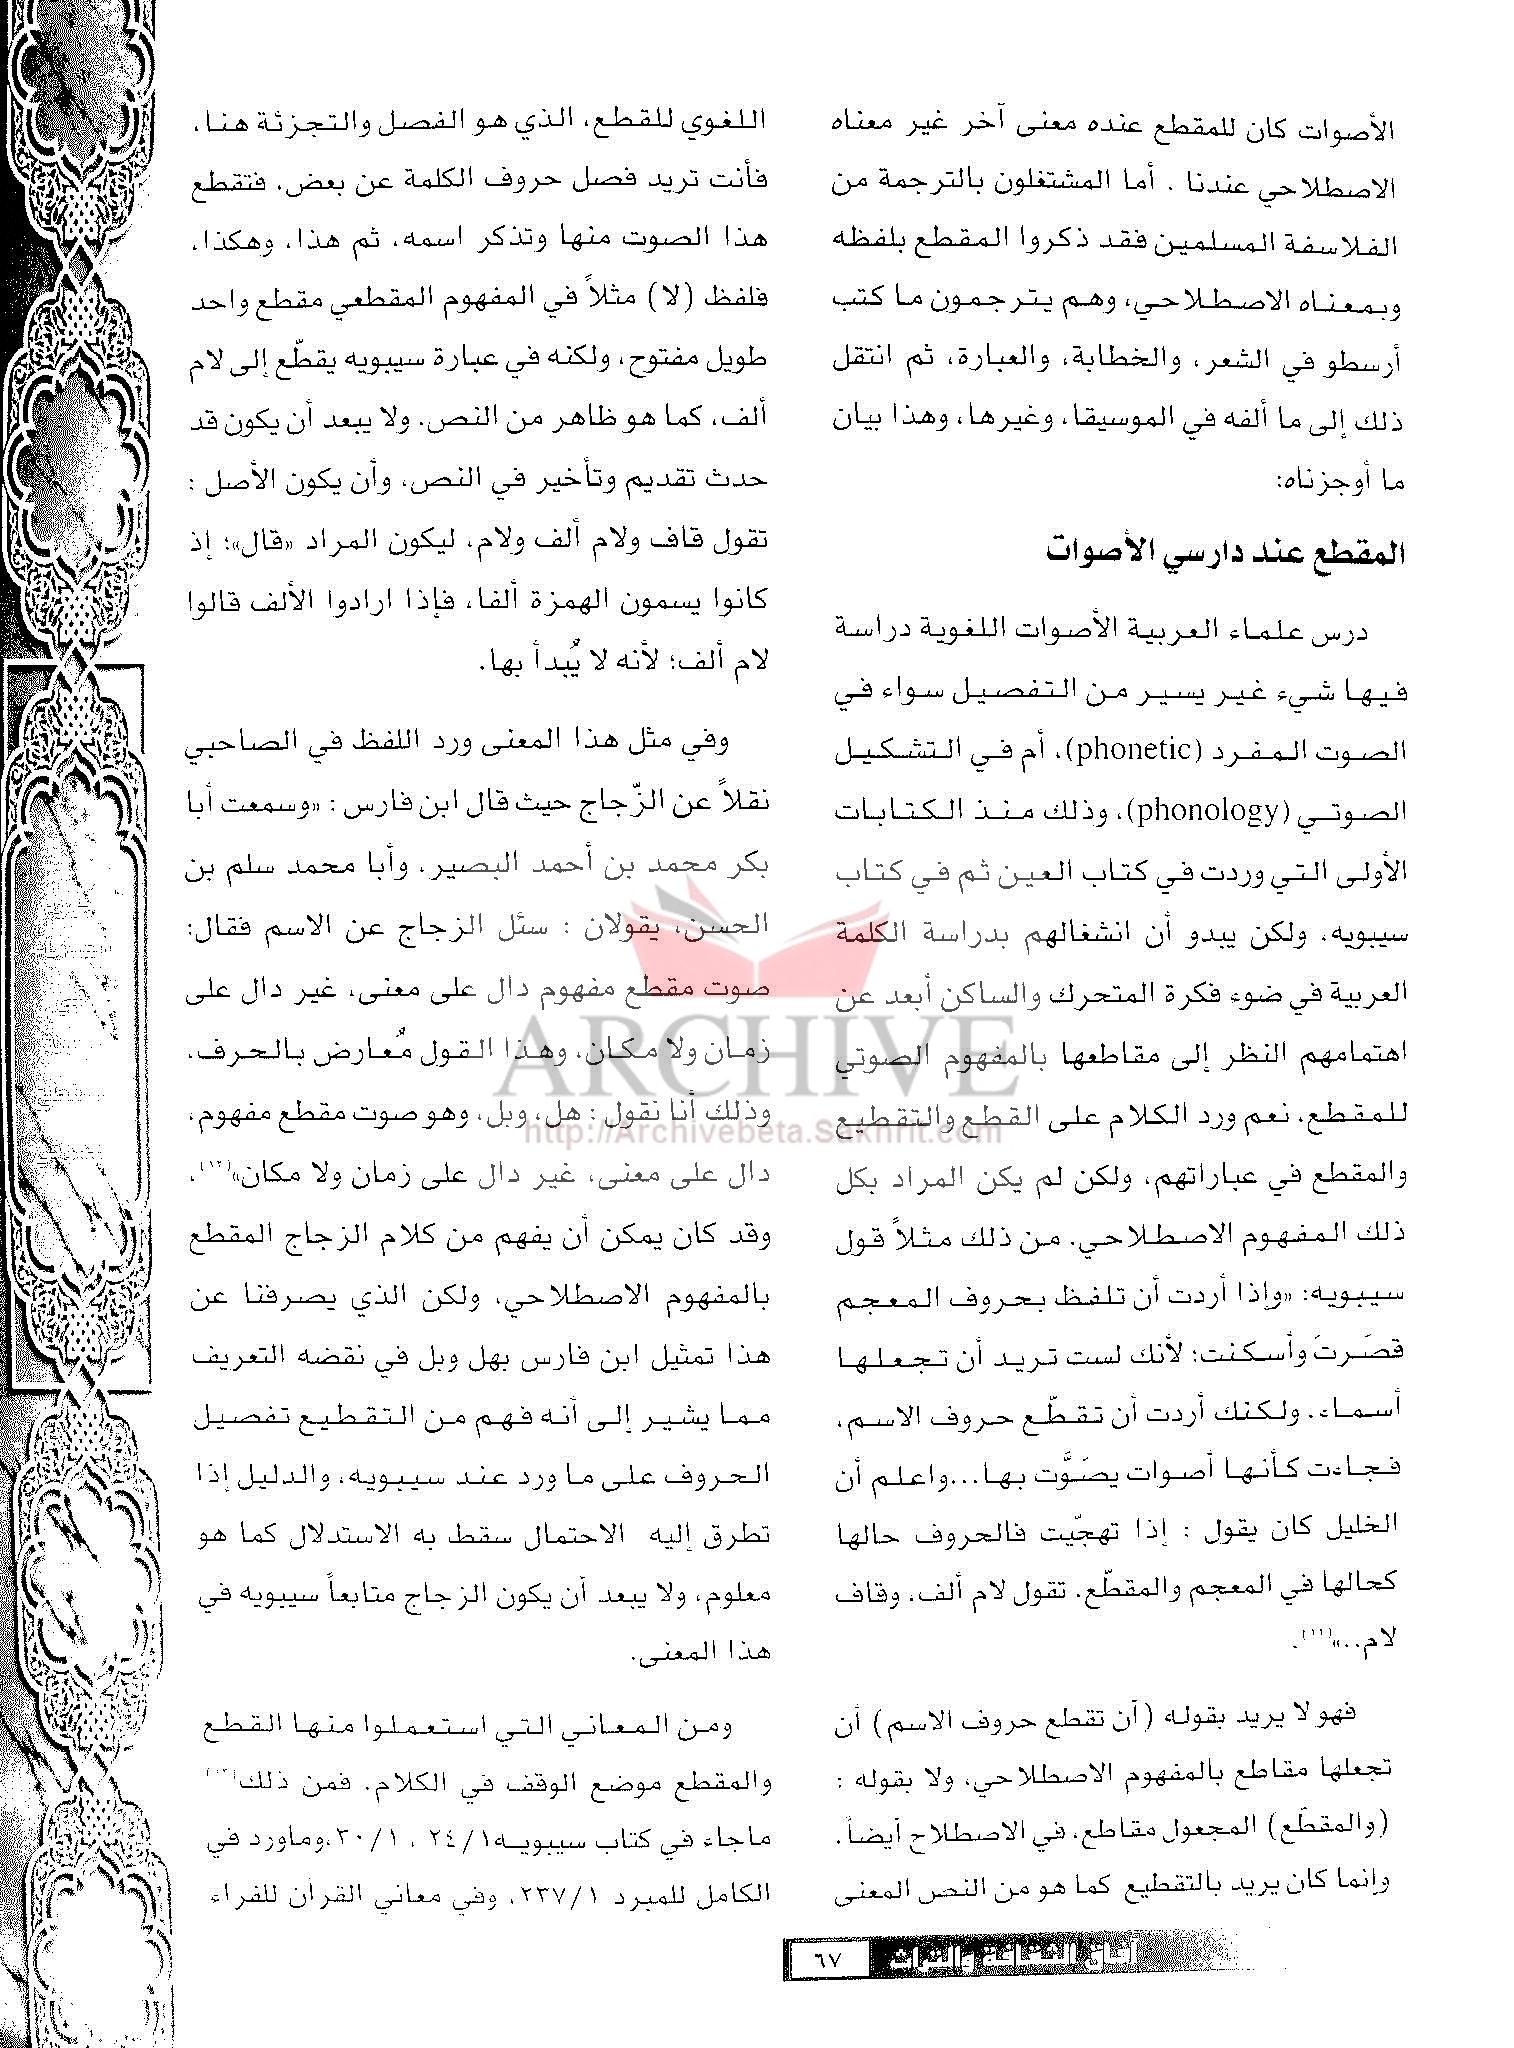 الأصوات كان للمقطع عنده معنى آخر غير معناه
الاصطلاحي عندنا . أما المشتغلون بالترجمة من
الفلاسفة المسلمين فقد ذكروا المقطع بلفظه
وبمعناه الاصطلاحي، وهم يترجمون ما كتب
أرسطو في الشعر، والخطابة، والعبارة، ثم انتقل
ذلك إلى ما ألفه في الموسيقا، وغيرها، وهذا بيان
ما أوجزناه:
المقطع عند دارسي الأصوات
درس علماء العربية الأصوات اللغوية دراسة
فيها شيء غير يسير من التفصيل سواء في
الصوت المفرد (phonetic)، أم في التشكيل
الصوتي (phonology)، وذلك منذ الكتابات
الأولى التي وردت في كتاب العين ثم في كتاب
سيبويه، ولكن يبدو أن انشغالهم بدراسة الكلمة
العربية في ضوء فكرة المتحرك والساكن أبعد عن
اهتمامهم النظر إلى مقاطعها بالمفهوم الصوتي
للمقطع، نعم ورد الكلام على القطع والتقطيع
والمقطع في عباراتهم، ولكن لم يكن المراد بكل
ذلك المفهوم الاصطلاحي. من ذلك مثلاً قول
سيبويه: «وإذا أردت أن تلفظ بحروف المعجم
قصَرتَ وأسكنت؛ لأنك لست تريد أن تجعلها
أسماء، ولكنك أردت أن تقطّع حروف الاسم،
فجاءت كأنها أصوات يصَوَّت بها...واعلم أن
الخليل كان يقول : إذا تهجّيت فالحروف حالها
كحالها في المعجم والمقطّع، تقول لام ألف، وقاف
لام..»(١١).
فهو لا يريد بقوله (أن تقطع حروف الاسم) أن
تجعلها مقاطع بالمفهوم الاصطلاحي، ولا بقوله :
(والمقطّع) المجعول مقاطع، في الاصطلاح أيضاً.
وإنما كان يريد بالتقطيع كما هو من النص المعنى
اللغوي للقطع، الذي هو الفصل والتجزئة هنا،
فأنت تريد فصل حروف الكلمة عن بعض، فتقطع
هذا الصوت منها وتذكر اسمه، ثم هذا، وهكذا،
فلفظ (لا) مثلاً في المفهوم المقطعي مقطع واحد
طويل مفتوح، ولكنه في عبارة سيبويه يقطّع إلى لام
ألف، كما هو ظاهر من النص. ولا يبعد أن يكون قد
حدث تقديم وتأخير في النص، وأن يكون الأصل :
تقول قاف ولام ألف ولام، ليكون المراد «قال»؛ إذ
كانوا يسمون الهمزة ألفا، فإذا ارادوا الألف قالوا
لام ألف؛ لأنه لا يُبدأ بها.
وفي مثل هذا المعنى ورد اللفظ في الصاحبي
نقلاً عن الزّجاج حيث قال ابن فارس : «وسمعت أبا
بكر محمد بن أحمد البصير، وأبا محمد سلم بن
الحسن، يقولان : سئل الزجاج عن الاسم فقال:
صوت مقطع مفهوم دال على معنى، غير دال على
زمان ولا مكان، وهذا القول مُعارض بالحرف،
وذلك أنا نقول : هل، وبل، وهو صوت مقطع مفهوم،
دال على معنى، غير دال على زمان ولا مكان»(١٢).
وقد كان يمكن أن يفهم من كلام الزجاج المقطع
بالمفهوم الاصطلاحي، ولكن الذي يصرفنا عن
هذا تمثيل ابن فارس بهل وبل في نقضه التعريف
مما يشير إلى أنه فهم من التقطيع تفصيل
الحروف على ما ورد عند سيبويه، والدليل إذا
تطرق إليه الاحتمال سقط به الاستدلال كما هو
معلوم، ولا يبعد أن يكون الزجاج متابعاً سيبويه في
هذا المعنى.
ومن المعاني التي استعملوا منها القطع
والمقطع موضع الوقف في الكلام. فمن ذلك(١٣)
ماجاء في كتاب سيبويه٢٤/١ ، ٣٠/١ ،وماورد في
الكامل للمبرد ٢٣٧/١، وفي معاني القرآن للفراء
ARCHIVE
http://Archivebeta.Sakhrit.com
آفاق الثقافة والتراث
٦٧